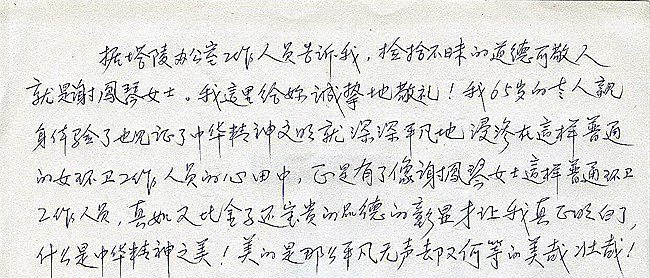 据塔陵办公室工作人员告诉我,拾捨不昧的道德可敬人
就是谢鳳琴女士。我這里给妳诚挚地敬礼!我65岁的老人親
身体验了也见证了中华精神文明就深深平凡地浸渗在這样普通
的女环卫工作人员的心田中,正是有了像谢鳳琴女士這样普通环卫
工作人员,真如又比金子还宝贵的品德的彰显才让我真正明白了,
什么是中华精神之美!美的是那么平凡无声却又何等的美哉壮哉!